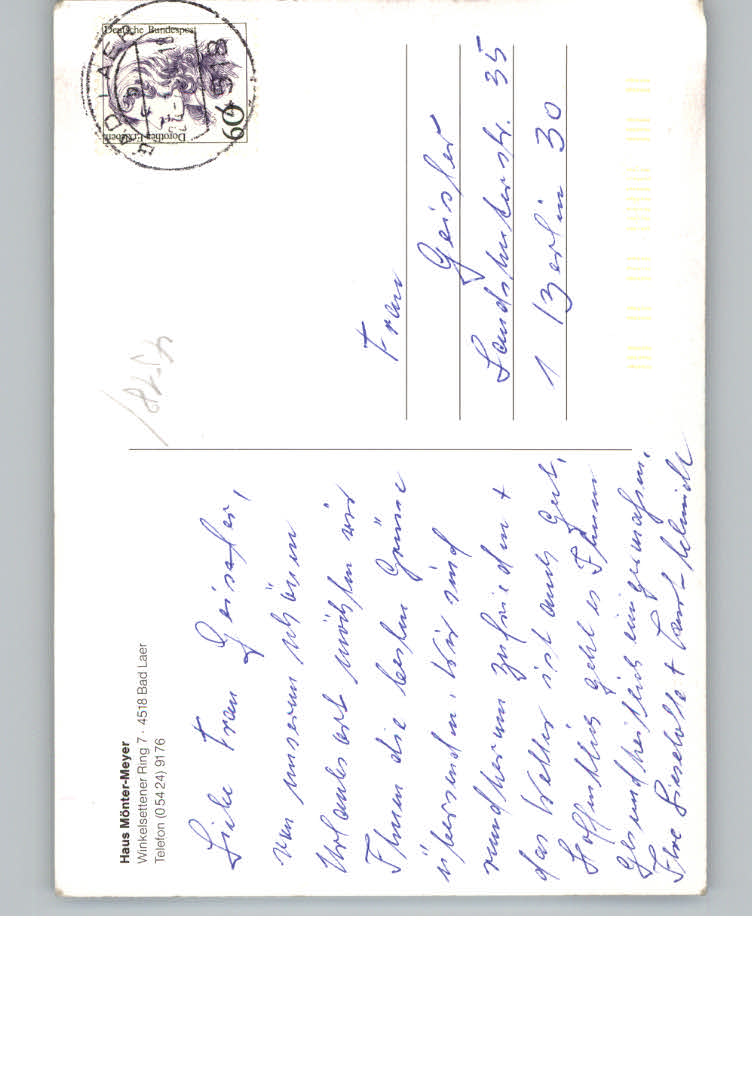 Haus Mönter-Meyer
Winkelsettener Ring 7 · 4518 Bad Laer
Telefon (0 54 24) 91 76
Liebe Frau Geissler,
von unserem schönen
Urlaubsort möchten wir
Ihnen die besten Grüsse
übersenden. Wir sind
rundherum zufrieden +
das Wetter ist auch gut.
Hoffentlich geht es Ihnen
gesundheitlich einigermaßen.
Ihre Lieselotte + Schmidt
Deutsche Bundespost
Dorothea Erxleben
60
4518
BAD LAER
Frau
Geissler
Landshuterstr. 35
1 Berlin 30